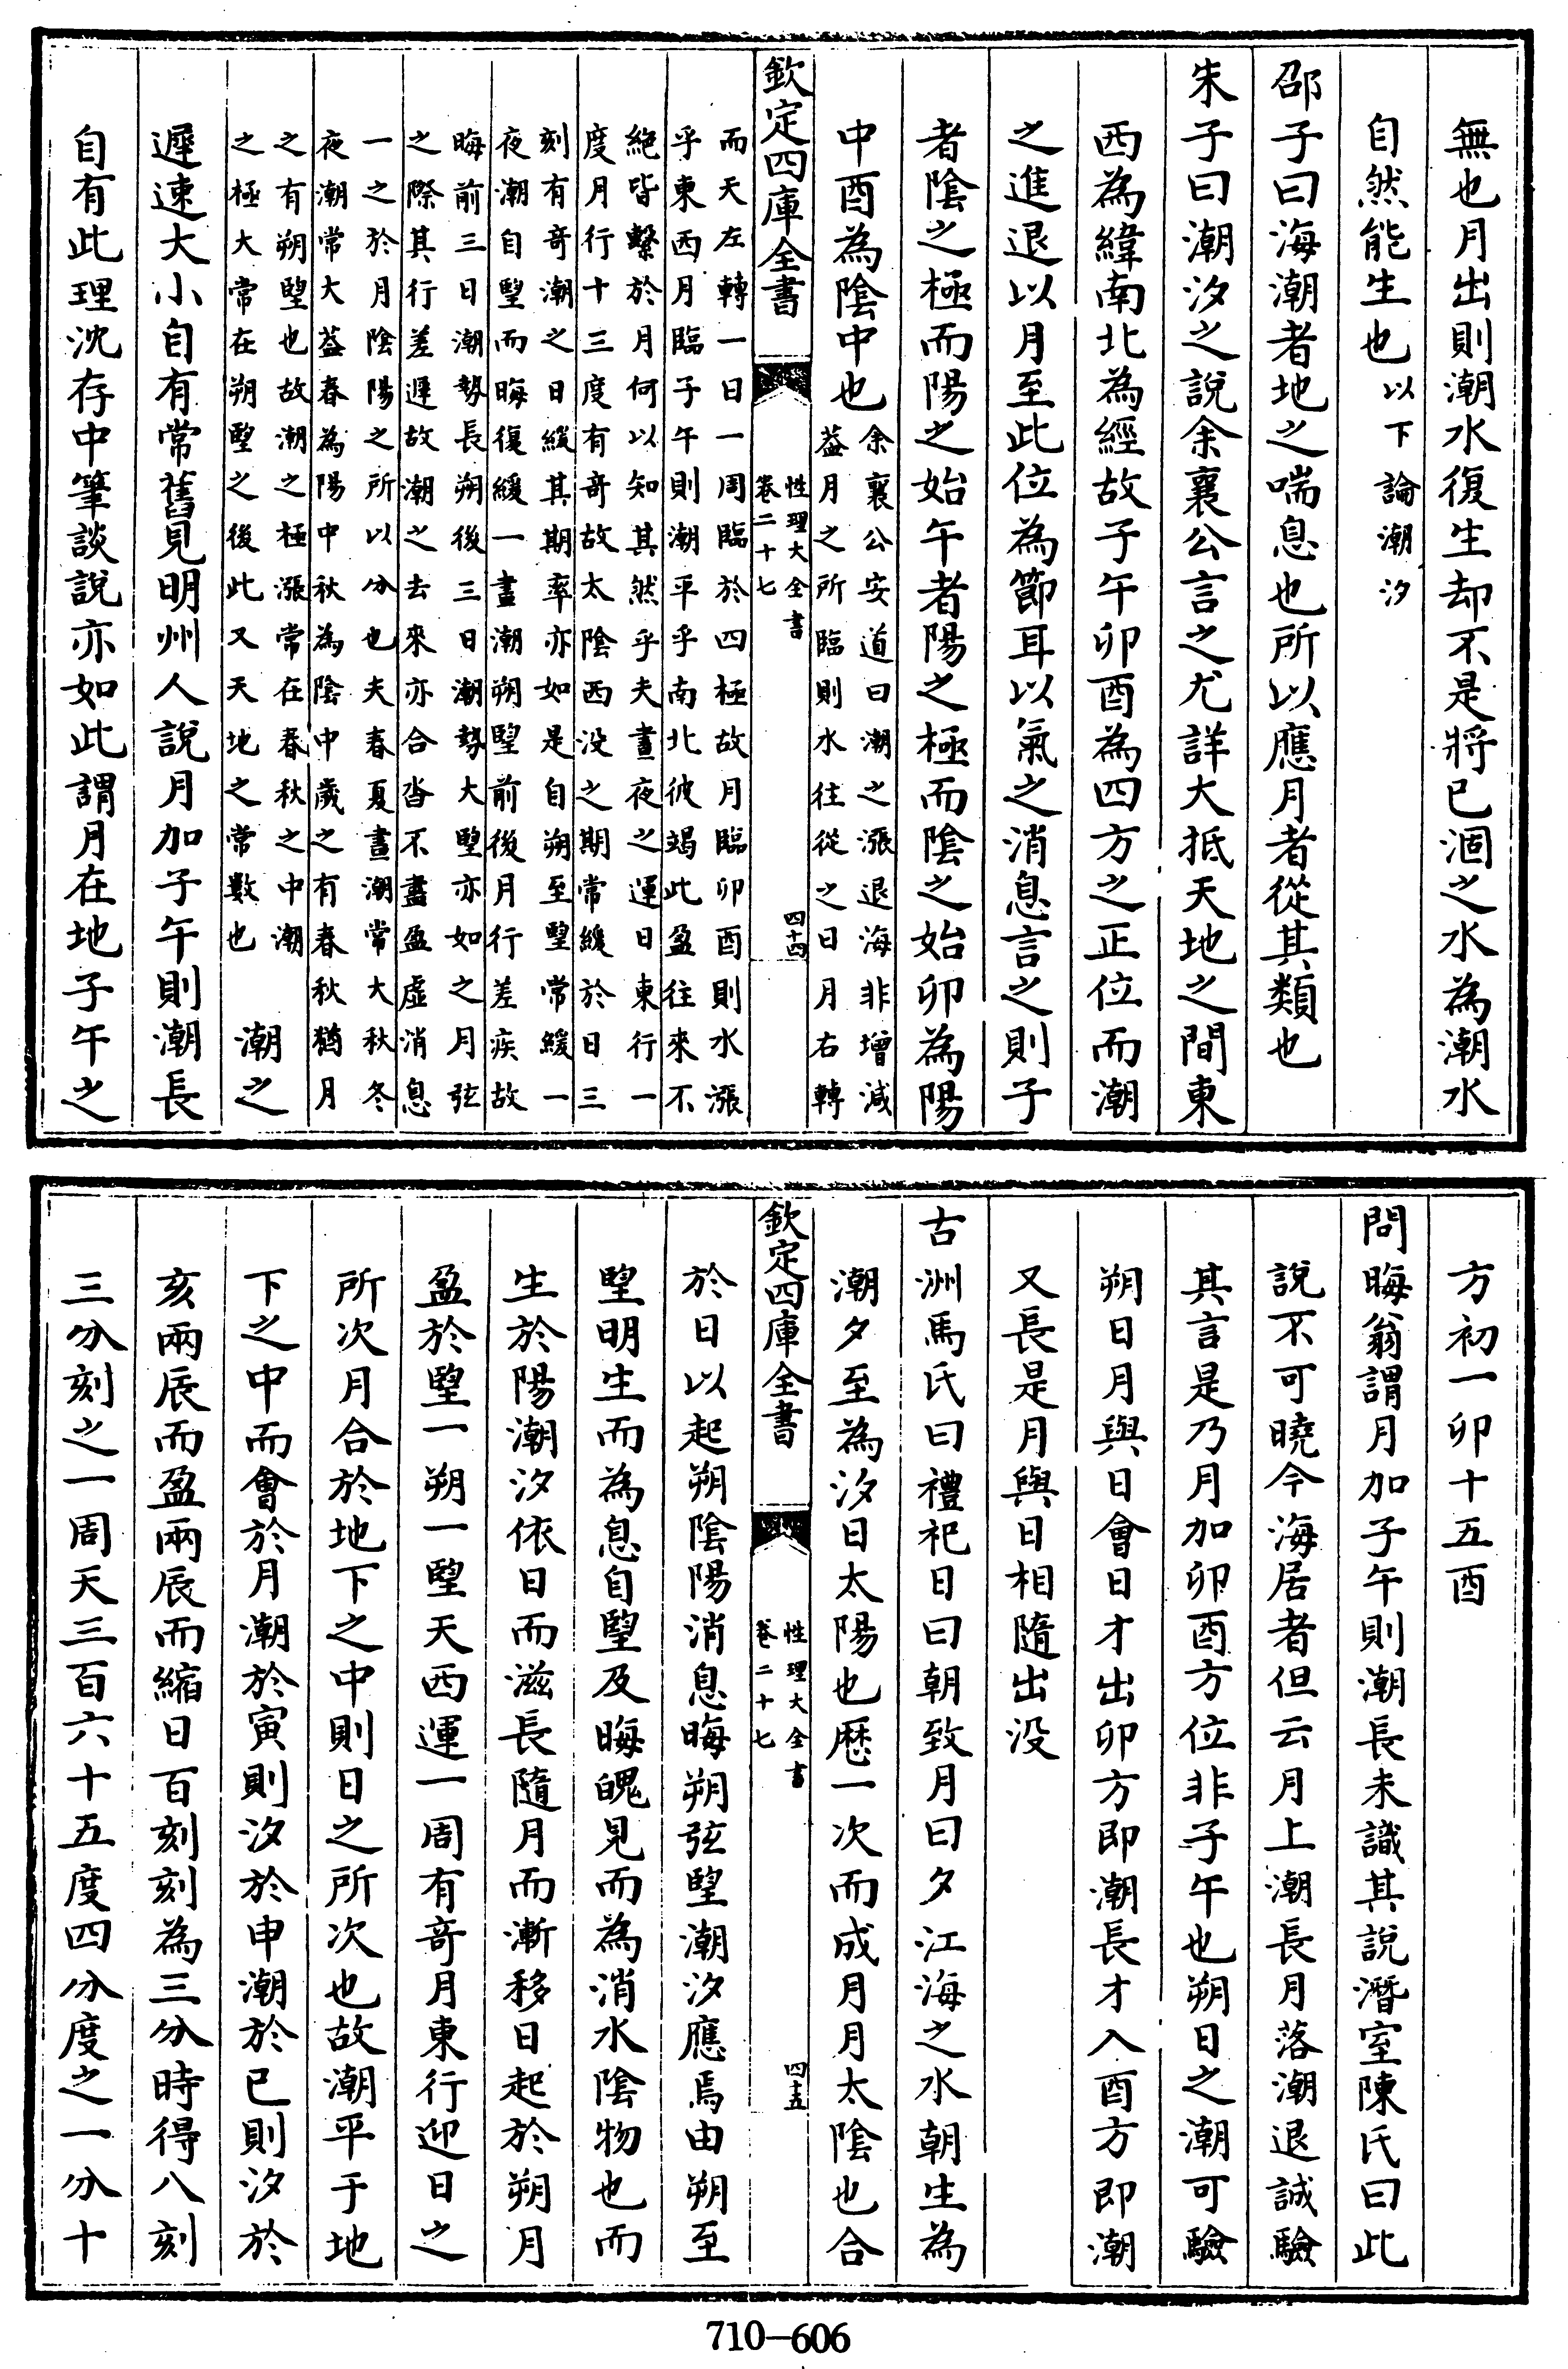 無也月出則潮水復生却不是將已涸之水為潮水
自然能生也以下論潮汐
邵子曰海潮者地之喘息也所以應月者從其類也
朱子曰潮汐之說余襄公言之尤詳大抵天地之間東
西為緯南北為經故子午卯酉為四方之正位而潮
之進退以月至此位為節耳以氣之消息言之則子
者陰之極而陽之始午者陽之極而陰之始卯為陽
中酉為陰中也
余襄公安道曰潮之漲退海非增減
葢月之所臨則水往從之日月右轉
欽定四庫全書
性理大全書
卷二十七
四十四
而天左轉一日一周臨於四極故月臨卯酉則水漲
乎東西月臨子午則潮平乎南北彼竭此盈往來不
絶皆繫於月何以知其然乎夫晝夜之運日東行一
度月行十三度有奇故太陰西没之期常緩於日三
刻有奇潮之日緩其期率亦如是自朔至朢常緩一
夜潮自朢而晦復緩一晝潮朔朢前後月行差疾故
晦前三日潮勢長朔後三日潮勢大朢亦如之月弦
之際其行差遲故潮之去來亦合沓不盡盈虛消息
一之於月陰陽之所以分也夫春夏晝潮常大秋冬
夜潮常大葢春為陽中秋為陰中歲之有春秋猶月
之有朔朢也故潮之極漲常在春秋之中潮
之極大常在朔朢之後此又天地之常數也
潮之
遲速大小自有常舊見明州人說月加子午則潮長
自有此理沈存中筆談說亦如此謂月在地子午之
方初一卯十五酉
問晦翁謂月加子午則潮長未識其說潛室陳氏曰此
說不可曉今海居者但云月上潮長月落潮退誠驗
其言是乃月加卯酉方位非子午也朔日之潮可驗
朔日月與日會日才出卯方即潮長才入酉方即潮
又長是月與日相隨出没
古洲馬氏曰禮祀日曰朝致月曰夕江海之水朝生為
潮夕至為汐日太陽也歴一次而成月月太陰也合
欽定四庫全書
性理大全書
卷二十七
四十五
於日以起朔陰陽消息晦朔弦朢潮汐應焉由朔至
朢明生而為息自朢及晦魄見而為消水陰物也而
生於陽潮汐依日而滋長隨月而漸移日起於朔月
盈於朢一朔一朢天西運一周有奇月東行迎日之
所次月合於地下之中則日之所次也故潮平于地
下之中而會於月潮於寅則汐於申潮於巳則汐於
亥兩辰而盈兩辰而縮日百刻刻為三分時得八刻
三分刻之一周天三百六十五度四分度之一分十
710-606